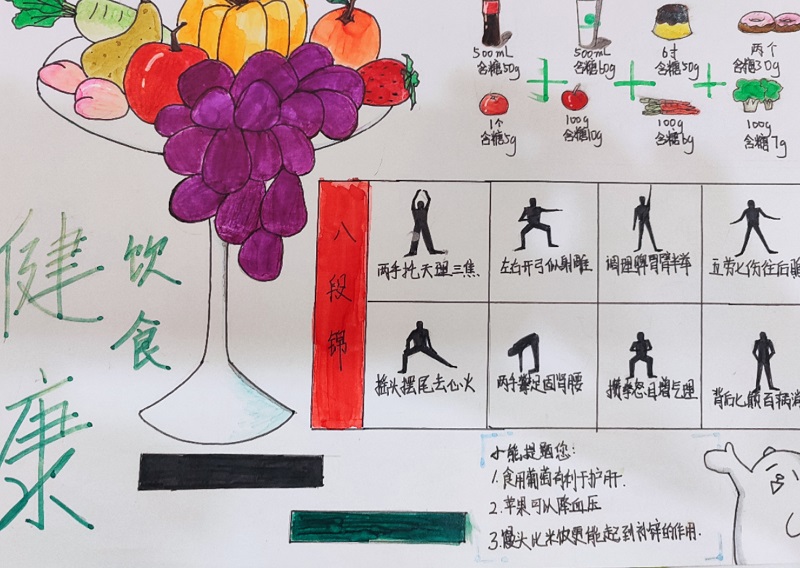 500mL
含糖50g
500mL
含糖60g
6寸
含糖50g
两个
含糖30g
1个
含糖5g
100g
含糖10g
100g
含糖6g
100g
含糖7g
健康
饮食
八段锦
两手托天理三焦
左右开弓似射雕
调理脾胃臂单举
五劳七伤往后
摇头摆尾去心火
两手攀足固肾腰
攒拳怒目增气理
背后七颠百病消
小熊提醒您:
1.食用葡萄有利于护肝.
2.苹果可以降血压
3.馒头比米饭更能起到补锌的作用.